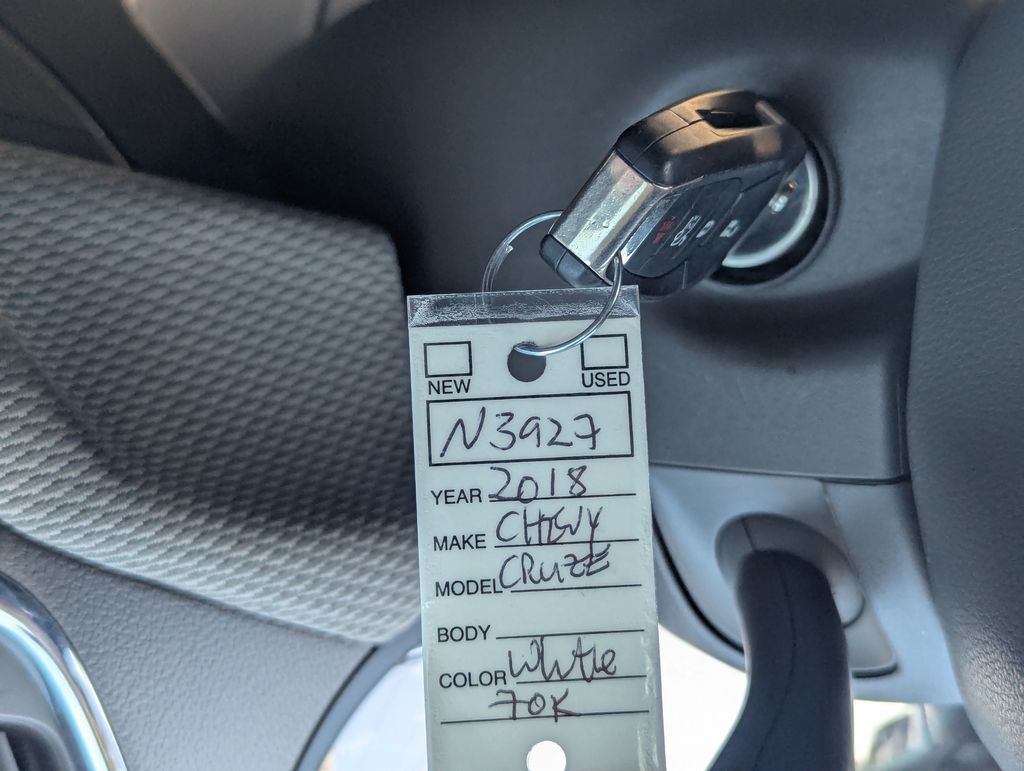 NEW USED
N3927
YEAR 2018
MAKE CHEVY
MODEL CRUZE
BODY
COLOR White
70K